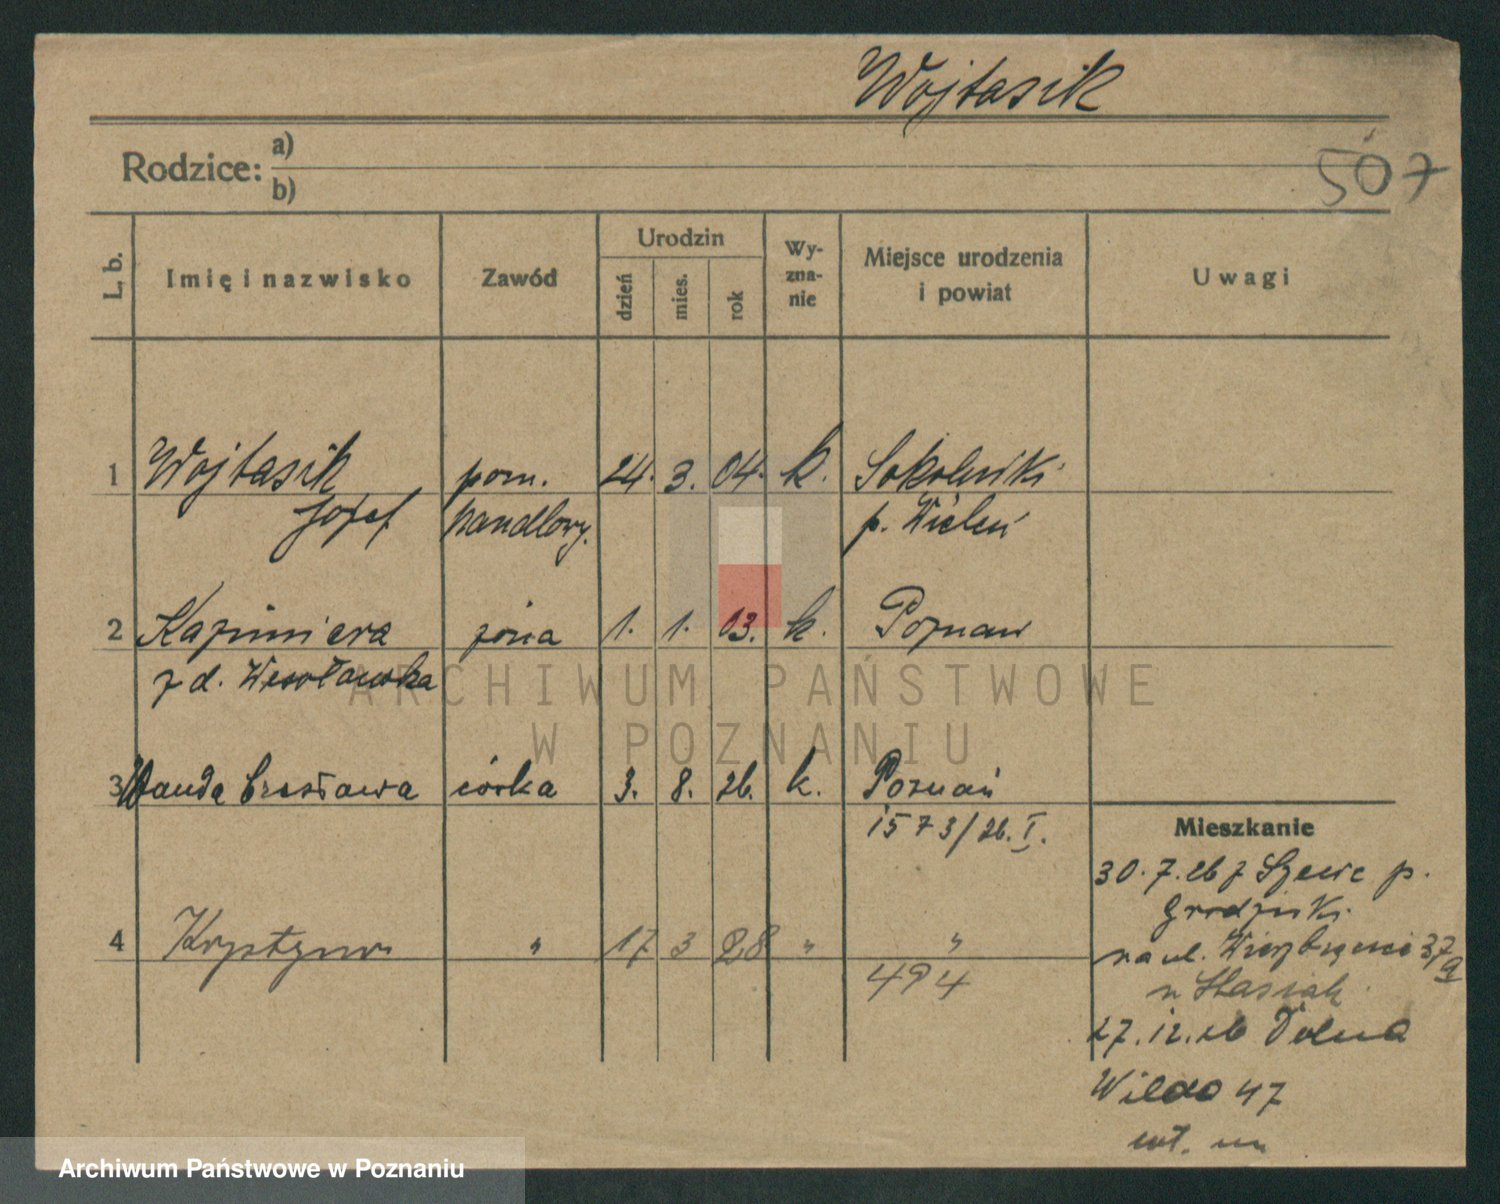 Wojtasik
Rodzice: a)
b)
507
L. b.
Imię i nazwisko
Zawód
Urodzin
dzień
mies.
rok
Wy-
zna-
nie
Miejsce urodzenia
i powiat
Uwagi
1 Wojtasik pom. 24. 3. 04. k. Sokolniki
Józef handlowy. p. Wieleń
2 Kazimiera żona 1. 1. 03. k. Poznań
z d. Wesołowska
3 Wanda Czesława córka 3. 8. 26. k. Poznań
1573/26. I.
4 Krystyna " 17 3 28 " "
494
Mieszkanie
30. 7. 26 z p.
Grodziski
na ul. Wierzbięcice 37a
u Stasiak
27. 12. 26 Dolna
Wilda 47
wł. m
ARCHIWUM PAŃSTWOWE
W POZNANIU
Archiwum Państwowe w Poznaniu